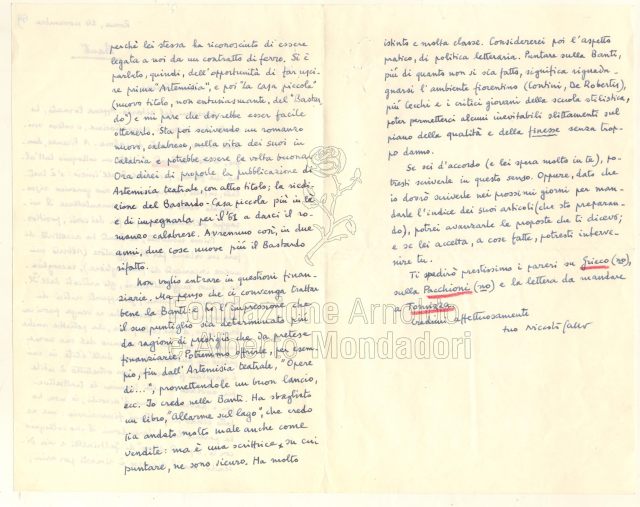 perchè lei stessa ha riconosciuto di essere
legata a noi da un contratto di ferro. Si è
parlato, quindi, dell'opportunità di far usci-
re prima "Artemisia", e poi "La casa piccola"
(nuovo titolo, non entusiasmante, del "Bastar-
do") e mi pare che dovrebbe esser facile
ottenerlo. Sta poi scrivendo un romanzo
nuovo, calabrese, sulla vita dei suoi in
Calabria e potrebbe essere la volta buona.
Ora direi di proporle la pubblicazione di
Artemisia teatrale, con altro titolo; la ried-
izione del Bastardo-Casa piccola più in là
e di impegnarla per il '61 a darci il ro-
manzo calabrese. Avremmo così, in due
anni, due cose nuove più il Bastardo
rifatto.
Non voglio entrare in questioni finan-
ziarie. Ma penso che ci convenga trattar
bene la Banti e ho l'impressione che
il suo puntiglio sia determinato più
da ragioni di prestigio che da pretese
finanziarie. Potremmo offrirle, per esem-
pio, fin dall'Artemisia teatrale, "Opere
di...", promettendole un buon lancio,
ecc. Io credo nella Banti. Ha sbagliato
un libro, "Allarme sul lago", che credo
sia andato molto male anche come
vendite: ma è una scrittrice su cui
puntare, ne sono sicuro. Ha molto
istinto e molta classe. Considererei poi l'aspetto
pratico, di politica letteraria. Puntare sulla Banti,
più di quanto non si sia fatto, significa riguada-
gnarsi l'ambiente fiorentino (Contini, De Robertis),
più Cecchi e i critici giovani della scuola stilistica,
poter permetterci alcuni inevitabili slittamenti sul
piano della qualità e della finesse senza trop-
po danno.
Se sei d'accordo (e lei spera molto in te), po-
tresti scriverle in questo senso. Oppure, dato che
io dovrò scriverle nei prossimi giorni per man-
darle l'indice dei suoi articoli (che sto preparan-
do), potrei avanzarle le proposte che ti dicevo;
e se lei accetta, a cose fatte, potresti interve-
nire tu.
Ti spedirò prestissimo i pareri su Grieco (no),
sulla Pacchioni (no) e la lettera da mandare
a
credimi affettuosamente
tuo Niccolò Gallo
Fondazione Arnoldo
e Alberto Mondadori